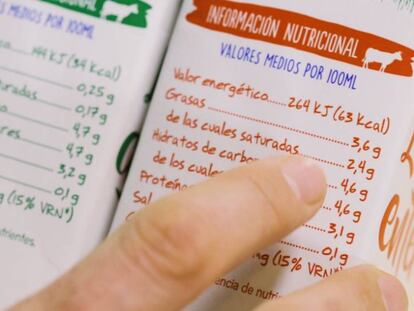 MEDIOS POR 100ML
144 KJ (34 Kcal)
0,25g
saturadas
0,17g
4,7g
4,7g
3,2g
0,1g
(15% VRN*)
nutrientes.
INFORMACIÓN NUTRICIONAL
VALORES MEDIOS POR 100ML
Valor energético 264 KJ (63 Kcal)
Grasas 3,6g
de las cuales saturadas 2,4g
Hidratos de carbono 4,6g
de los cuales 4,6g
Proteínas 3,1g
Sal 0,1g
(15% VRN*)